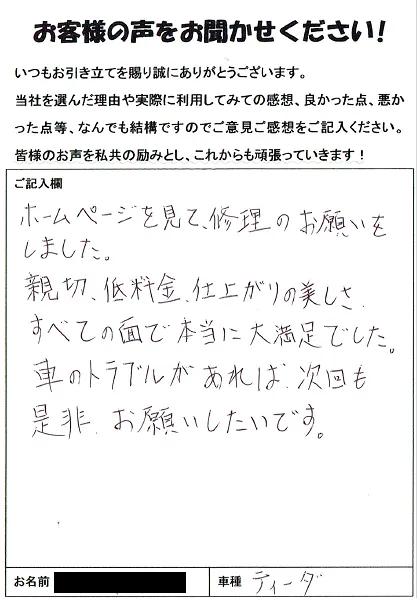 お客様の声をお聞かせください!
いつもお引き立てを賜り誠にありがとうございます。
当社を選んだ理由や実際に利用してみての感想、良かった点、悪か
った点等、なんでも結構ですのでご意見ご感想をご記入ください。
皆様のお声を私共の励みとし、これからも頑張っていきます!
ご記入欄
ホームページを見て、修理のお願いを
しました。
親切、低料金、仕上がりの美しさ、
すべての面で本当に大満足でした。
車のトラブルがあれば、次回も
是非、お願いしたいです。
お名前
車種 ティーダ